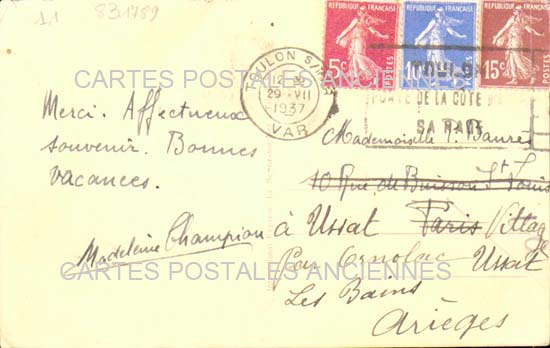 1.1 831789
REPUBLIQUE FRANÇAISE REPUBLIQUE FRANÇAISE REPUBLIQUE FRANÇAISE
5c POSTES 10c POSTES 15c POSTES
TOULON S/MER
29 - VII
1937
VAR
DE LA COTE
SA RADE
CARTES POSTALES ANCIENNES
Merci. Affectueux
souvenir. Bonnes
vacances.
Madeleine Champion
Mademoiselle P. Baurès
10 Rue de Buisson St Louis
à Ussat Paris Village
par Ornolac Ussat
Les Bains
Arièges
CARTES POSTALES ANCIENNES